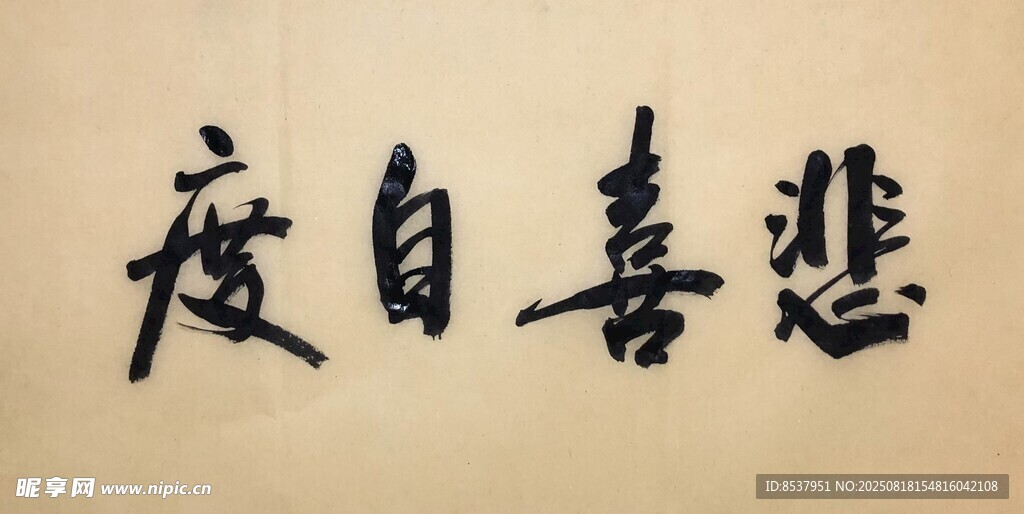 悲喜自度
昵享网 www.nipic.cn
ID:8537951 NO:20250818154816042108